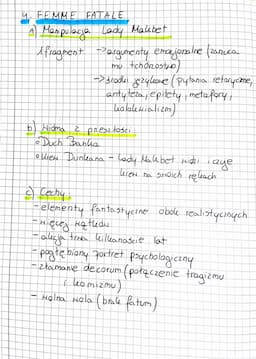 4. FEMME FATALE
a) Manipulacja Lady Makbet
1 fragment → argumenty emocjonalne (zarzuca
mu tchórzostwo)
→ środki językowe (pytania retoryczne,
antyteza, epitety, metafory,
kolokwializm)
b) Widma z przeszłości
• Duch Banka
• krew Dunkana - Lady Makbet widzi i czuje
krew na swoich rękach
c) Cechy:
- elementy fantastyczne obok realistycznych
- więcej wątków
- akcja trwa kilkanaście lat
- pogłębiony portret psychologiczny
- złamanie decorum (połączenie tragizmu
i komizmu)
- wolna wola (brak fatum)